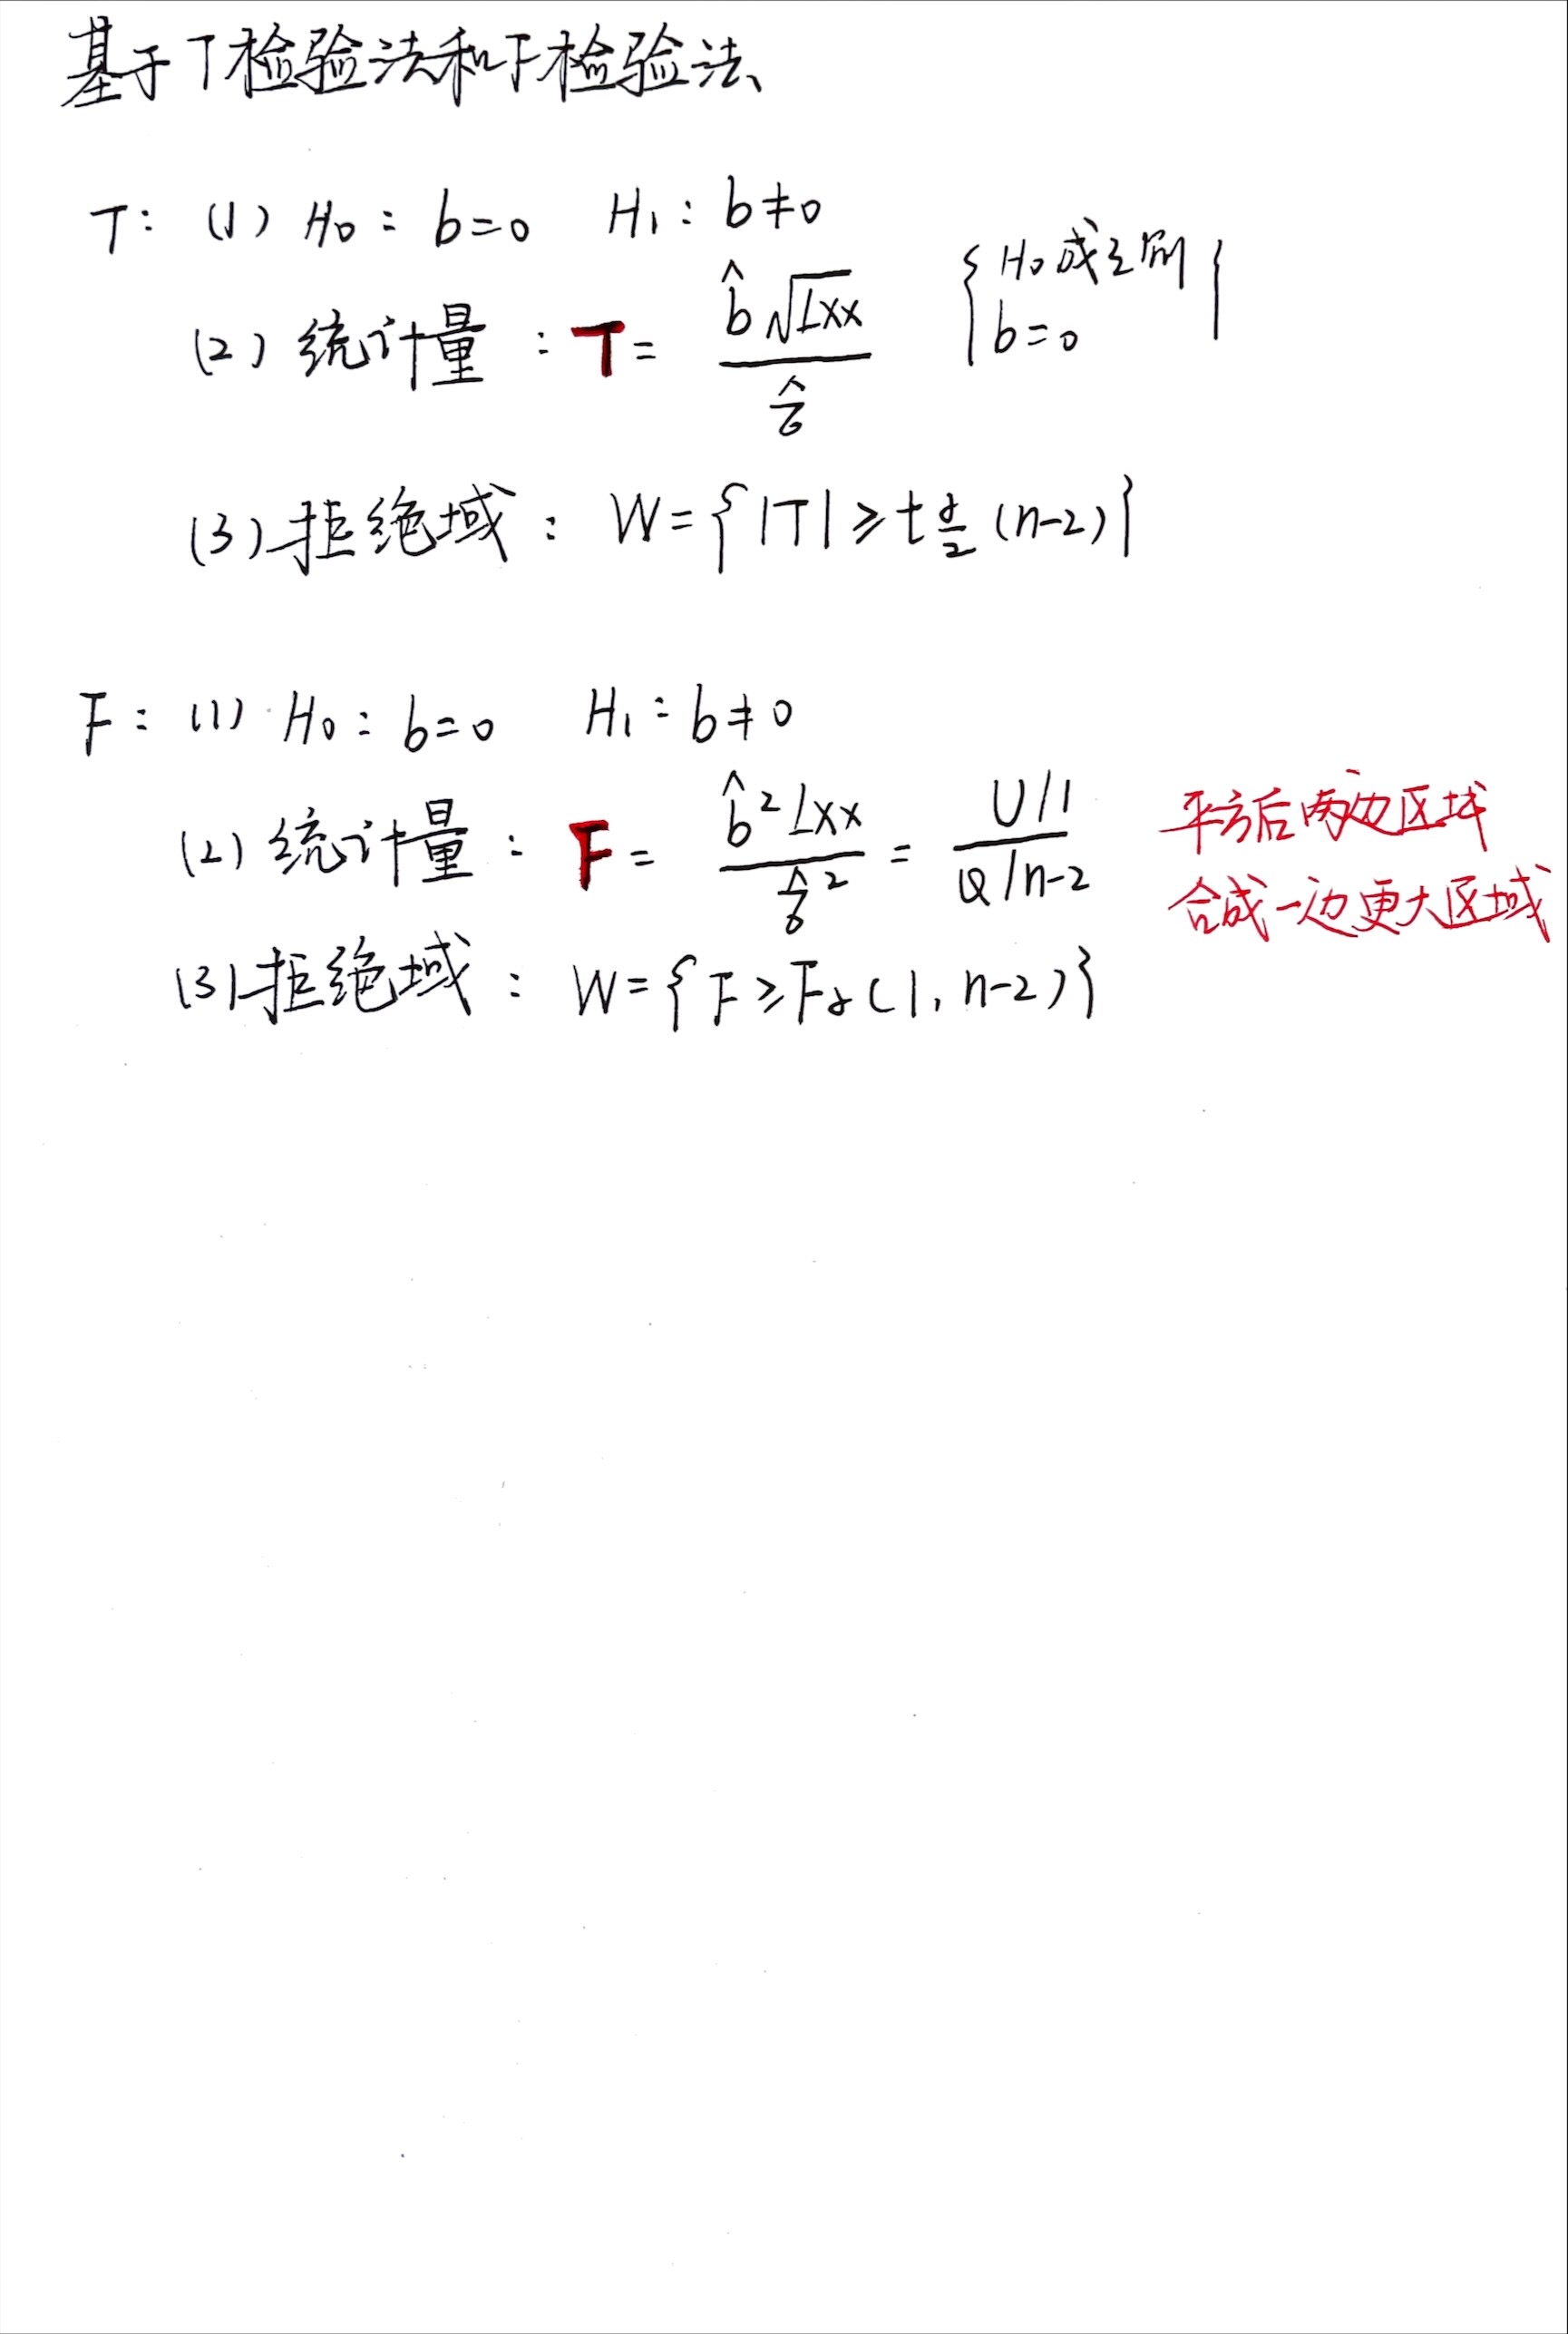 基于T检验法和F检验法
T: (1) H₀: b=0 H₁: b≠0
(2) 统计量: T= b̂√Lxx / σ̂ { H₀成立则 b=0 }
(3) 拒绝域: W={|T|≥t α/2 (n-2)}
F: (1) H₀: b=0 H₁: b≠0
(2) 统计量: F= b̂²Lxx / σ̂² = U/1 / Q/n-2
平方后两边区域
合成一边更大区域
(3) 拒绝域: W={F≥Fα(1, n-2)}